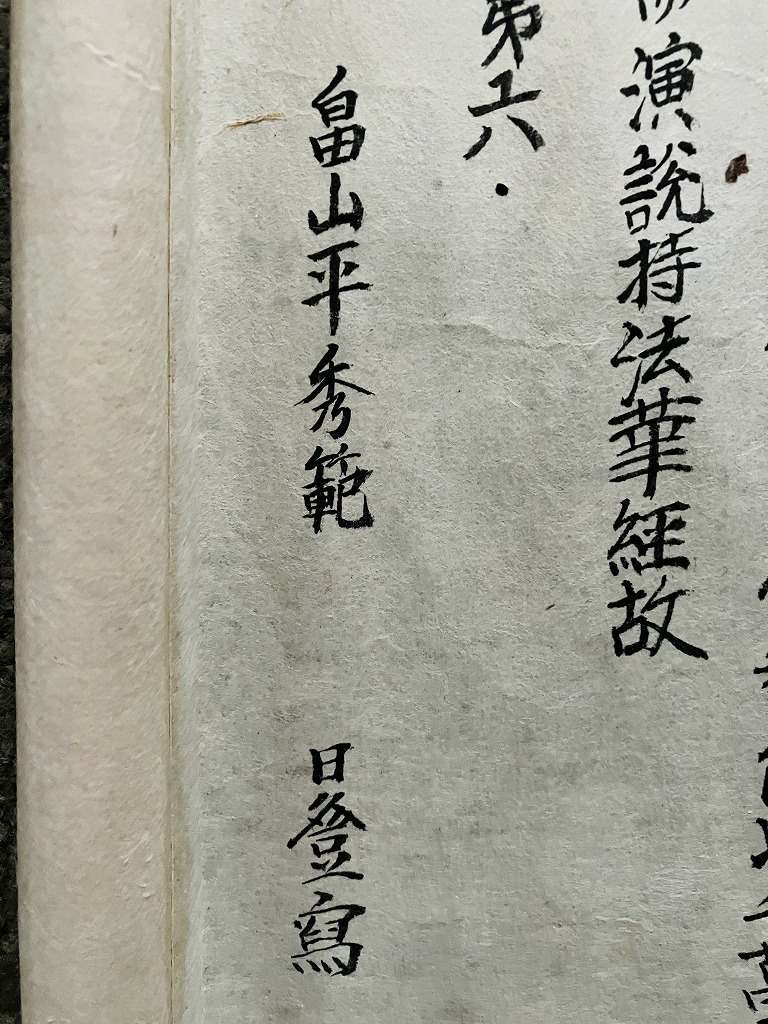 演說持法華經故
第六
畠山平秀範 日登寫